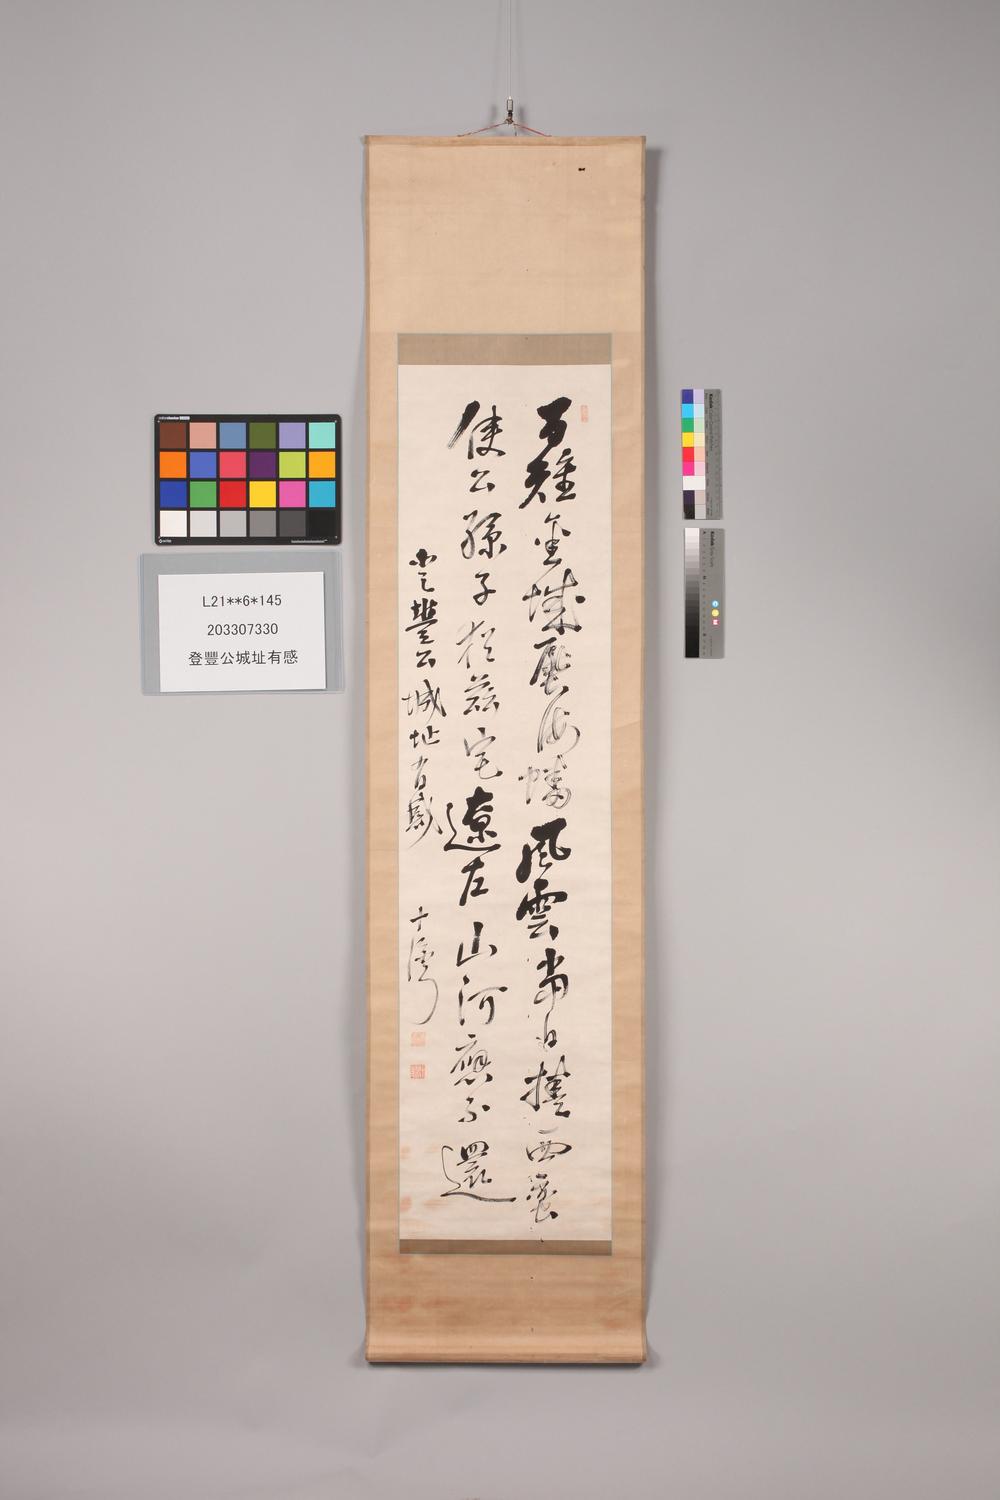 百雉金城壓海蟠風雲當日擁西
使公孫子猶茲宅遼左山河應不還
登豐公城址有感
L21**6*145
203307330
登豐公城址有感